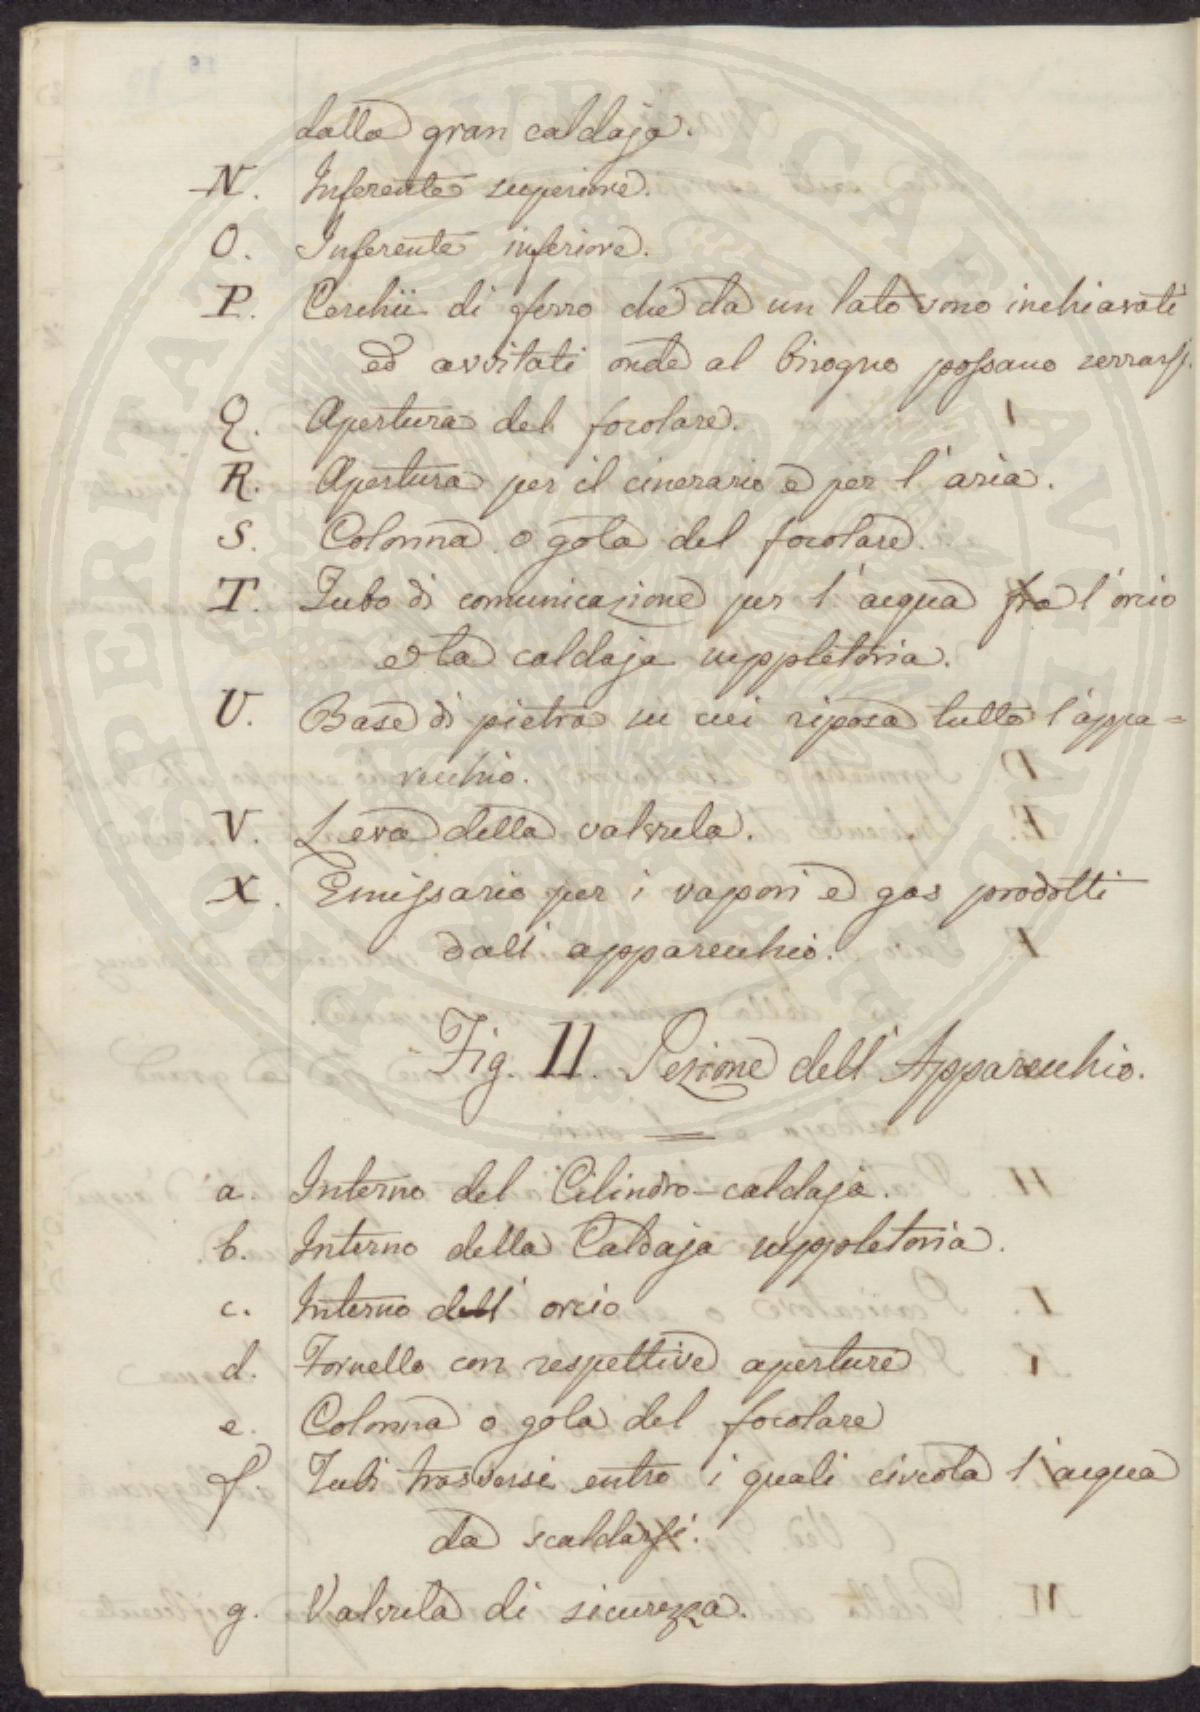 dalla gran caldaja.
N. Inferente superiore.
O. Inferente inferiore.
P. Cerchii di ferro che da un lato sono inchiavati
ed avvitati onde al bisogno possano serrarsi.
Q. Apertura del focolare.
R. Apertura per il cinerario e per l'aria.
S. Colonna o gola del focolare.
T. Tubo di comunicazione per l'acqua fra l'orcio
e la caldaja suppletoria.
U. Base di pietra su cui riposa tutto l'appa=
recchio.
V. Leva della valvula.
X. Emissario per i vapori e gas prodotti
dall'apparecchio.
Fig. II. Sezione dell'Apparecchio.
a. Interno del Cilindro-caldaja.
b. Interno della Caldaja suppletoria.
c. Interno dell'orcio
d. Fornello con respettive aperture
e. Colonna o gola del focolare
f Tubi trasversi entro i quali circola l'acqua
da scaldarsi.
g. Valvula di sicurezza.
PROSPERITATI PUBLICAE AUGENDAE